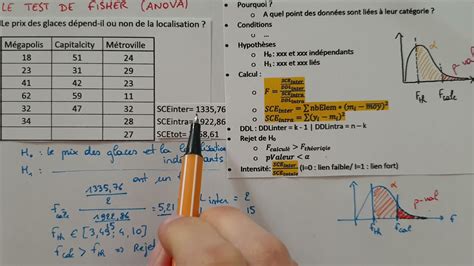 LE TEST DE FISHER (ANOVA)
Le prix des glaces dépend-il ou non de la localisation ?
Mégapolis Capitalcity Métroville
18 51 24
23 31 29
41 42 23
62 59 11
32 47 32
34 28
27
SCEinter= 1335,76
SCEintra= 1922,86
SCEtot= 58,61
H₀ : le prix des glaces et la localisation
indépendants
H₁ :
ont un
1335,76
f calc = 5,21
1922,86
inter = 2
15
15
f th ∈ [3,49; 4,10]
f calc > f th ⇒ Rejet
• Pourquoi ?
o A quel point des données sont liées à leur catégorie ?
• Conditions
o ...
• Hypothèses
o H₀ : xxx et xxx indépendants
o H₁ : xxx et xxx liés
• Calcul :
o F =
o SCE inter = ∑ nbElem * (mᵢ − moy)²
o SCE intra = ∑(yᵢ − mᵢ)²
• DDL : DDLinter = k - 1 | DDLintra = n – k
• Rejet de H₀
o F calculé > F théorique
o pValeur < α
• Intensité: SCE inter / SCE totale (I=0 : lien faible/ I= 1 : lien fort)
α
p-val
f th f calc
α
p-val
f th f calc